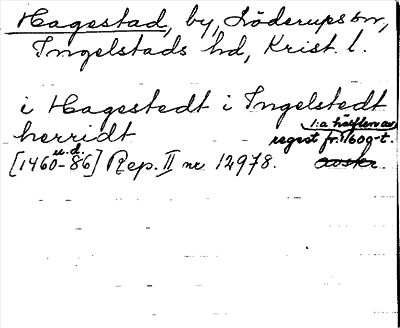 Hagestad, by, Löderups sn,
Ingelstads hd, Krist. l.
i Hagestedt i Ingelstedt
herridt
1:a hälften av
regest fr. 1600-t.
u.d.
[1460-86] Rep. II nr 12978. avskr.